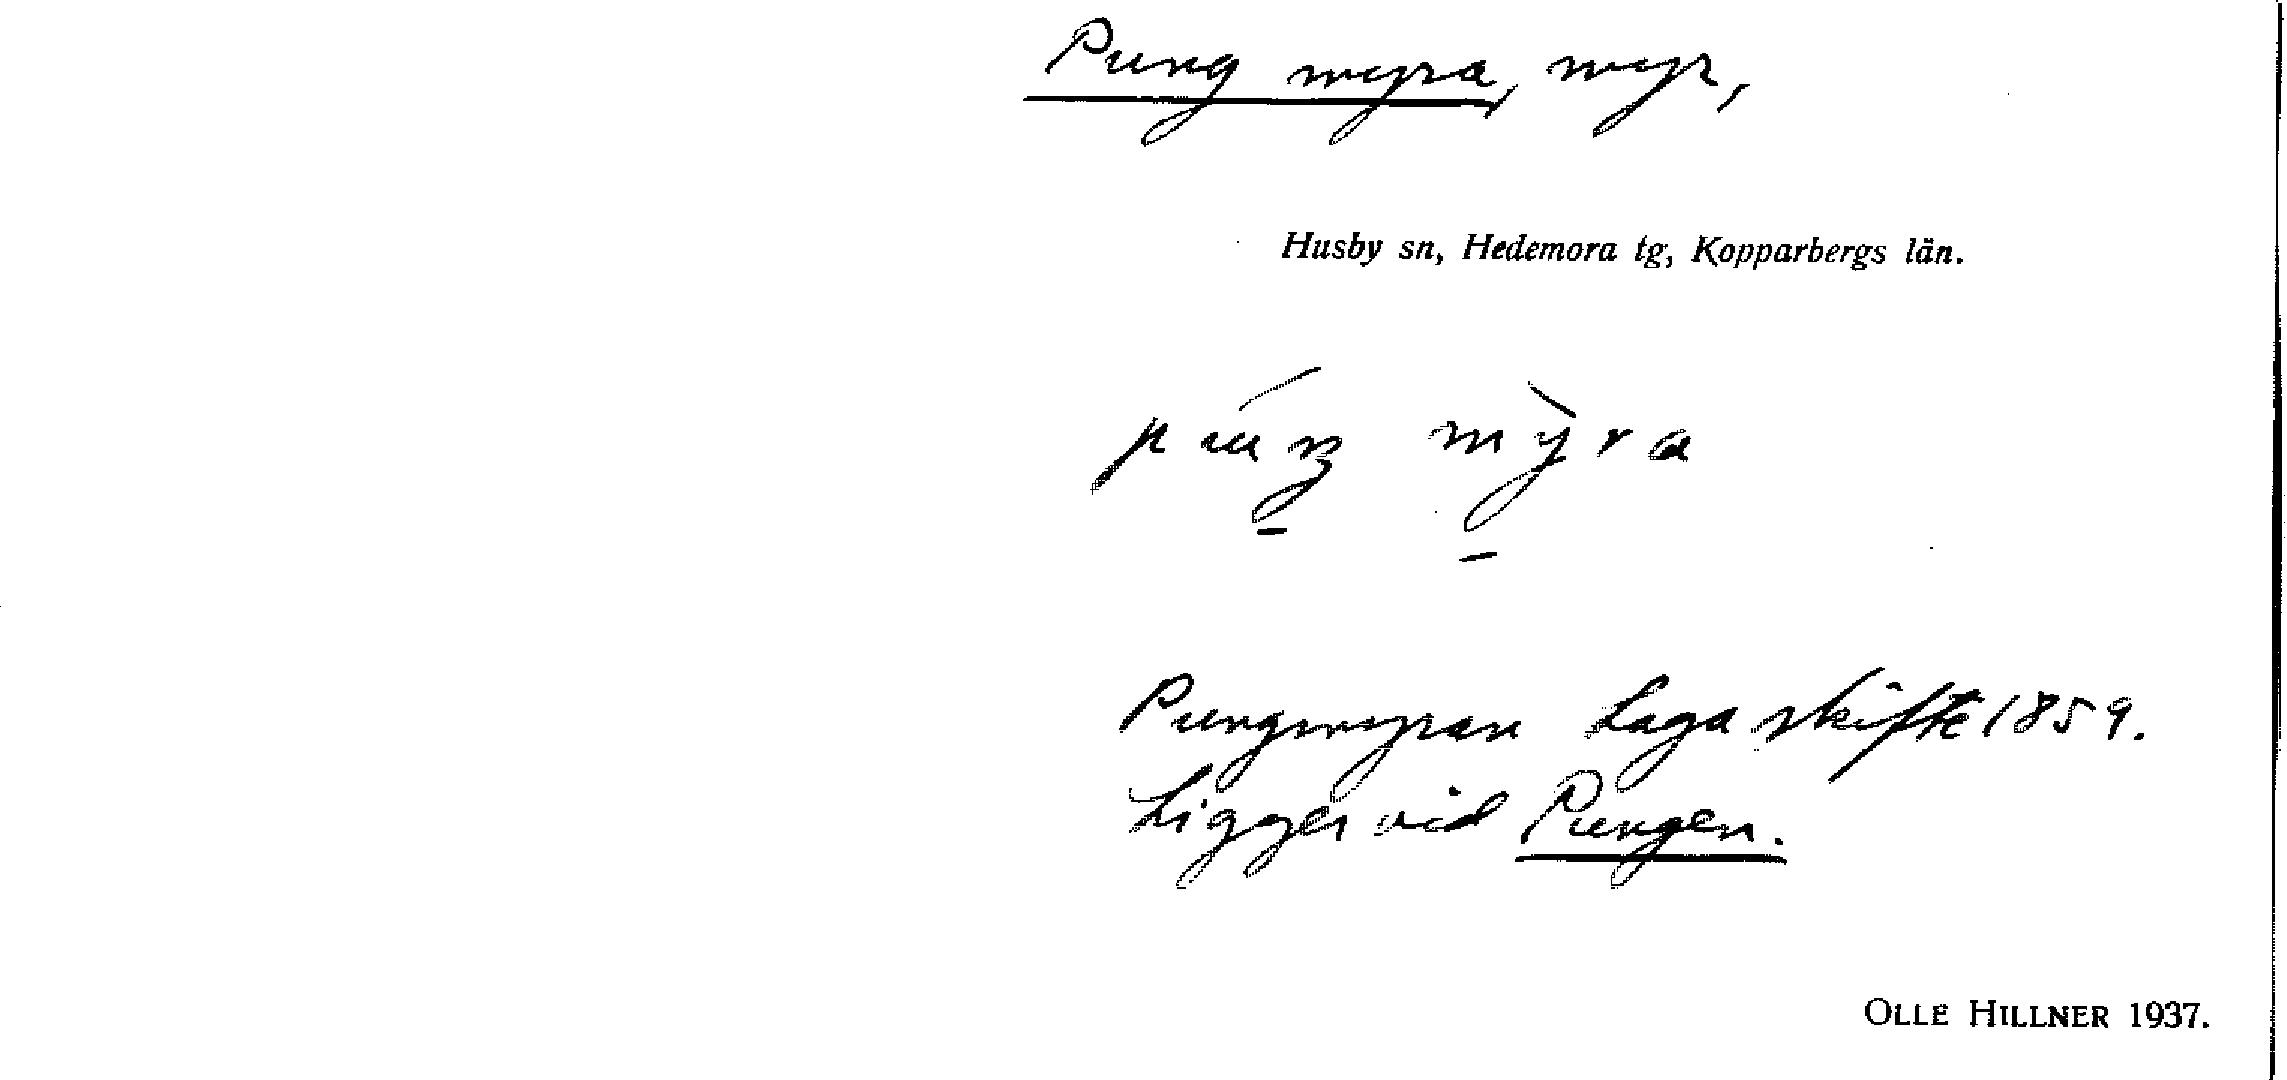 Pung myra, myr,
Husby sn, Hedemora tg, Kopparbergs län.
púŋ mỳra
Pungmyran Laga skifte 1859.
Ligger vid Pungen.
OLLE HILLNER 1937.